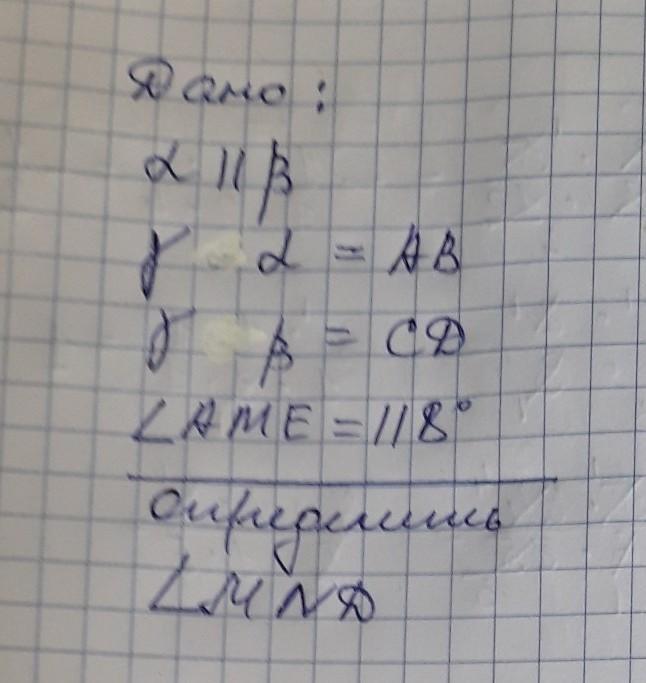 Дано:
α || β
γ α = AB
γ β = CD
∠AME = 118°
определить
∠MND